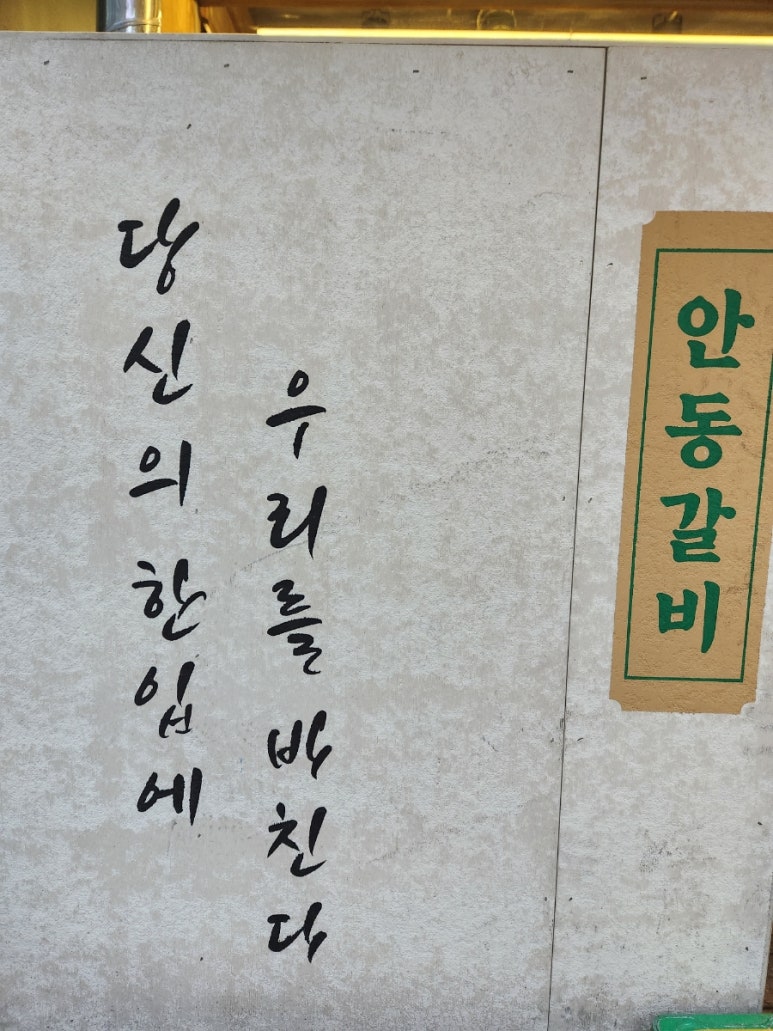 당신의한입에
우리를바친다
안동갈비